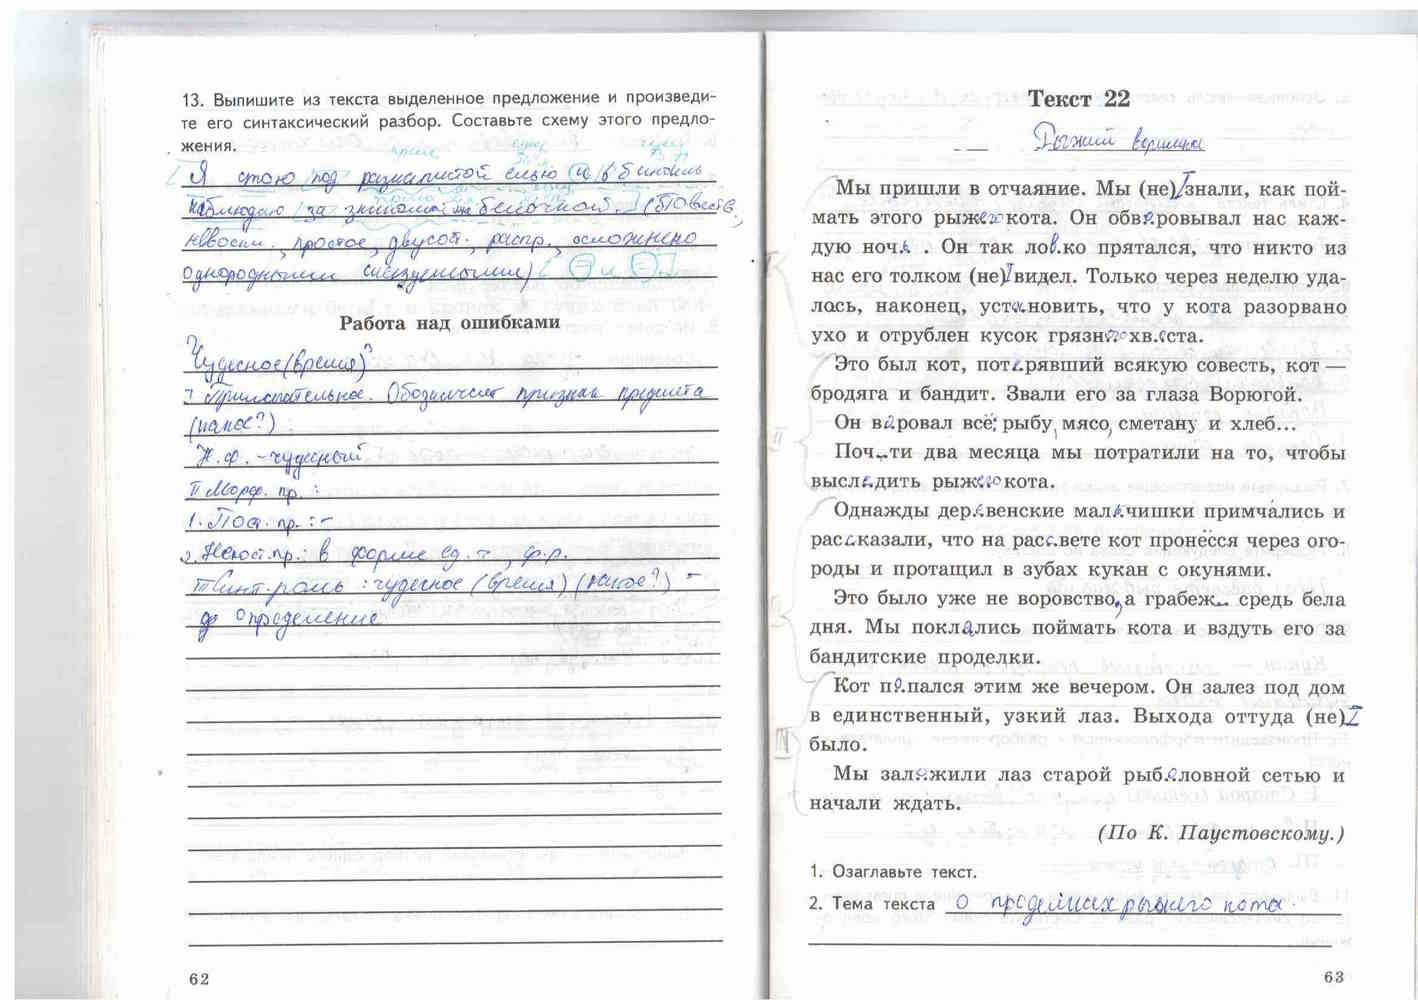 13. Выпишите из текста выделенное предложение и произведи-
те его синтаксический разбор. Составьте схему этого предло-
жения.
Я стою под разлапистой елью и в бинокль
наблюдаю за знакомой белочкой. (Повеств.,
невоскл., простое, двусост., распр., осложнено
однородными сказуемыми)
Работа над ошибками
Чудесное (время)
I Прилагательное. Обозначает признак предмета
(какое?).
Н.ф. - чудесный
II Морф. пр.:
1. Пост. пр.: -
2. Непост. пр.: в форме ед. ч., ср. р.
III Синт. роль: чудесное (время) (какое?) -
определение
62
Текст 22
Рыжий воришка
Мы пришли в отчаяние. Мы (не) знали, как пой-
мать этого рыжего кота. Он обворовывал нас каж-
дую ночь . Он так ловко прятался, что никто из
нас его толком (не) видел. Только через неделю уда-
лось, наконец, установить, что у кота разорвано
ухо и отрублен кусок грязного хвоста.
Это был кот, потерявший всякую совесть, кот —
бродяга и бандит. Звали его за глаза Ворюгой.
Он воровал всё: рыбу, мясо, сметану и хлеб...
Поч..ти два месяца мы потратили на то, чтобы
выследить рыжего кота.
Однажды деревенские мальчишки примчались и
рассказали, что на рассвете кот пронёсся через ого-
роды и протащил в зубах кукан с окунями.
Это было уже не воровство, а грабеж.. средь бела
дня. Мы поклялись поймать кота и вздуть его за
бандитские проделки.
Кот попался этим же вечером. Он залез под дом
в единственный, узкий лаз. Выхода оттуда (не)
было.
Мы заложили лаз старой рыболовной сетью и
начали ждать.
(По К. Паустовскому.)
1. Озаглавьте текст.
2. Тема текста О проделках рыжего кота.
63